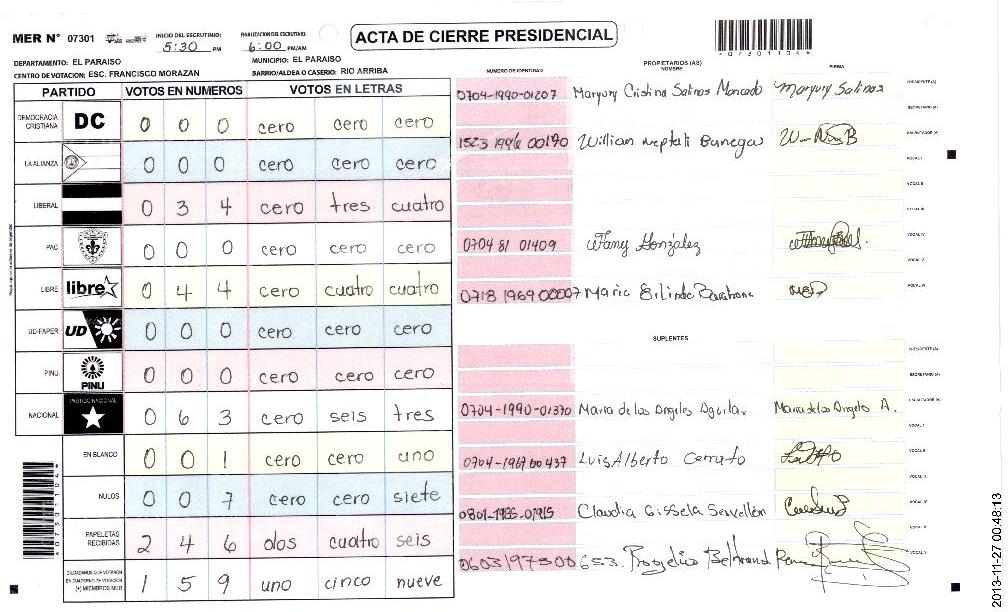 MER N° 07301 INICIO DEL ESCRUTINIO: 5:30 PM FINALIZACION DEL ESCRUTINIO: 6:00 PM/AM
ACTA DE CIERRE PRESIDENCIAL
*07301104*
DEPARTAMENTO: EL PARAISO MUNICIPIO: EL PARAISO
CENTRO DE VOTACION: ESC. FRANCISCO MORAZAN BARRIO/ALDEA O CASERIO: RIO ARRIBA
PARTIDO VOTOS EN NUMEROS VOTOS EN LETRAS
DEMOCRACIA CRISTIANA DC 0 0 0 cero cero cero
LA ALIANZA 0 0 0 cero cero cero
LIBERAL 0 3 4 cero tres cuatro
PAC 0 0 0 cero cero cero
LIBRE libre 0 4 4 cero cuatro cuatro
UD-FAPER UD 0 0 0 cero cero cero
PINU PINU 0 0 0 cero cero cero
NACIONAL PARTIDO NACIONAL 0 6 3 cero seis tres
EN BLANCO 0 0 1 cero cero uno
NULOS 0 0 7 cero cero siete
PAPELETAS RECIBIDAS 2 4 6 dos cuatro seis
CIUDADANOS QUE VOTARON EN CUADERNO DE VOTACION (+) MIEMBROS MER 1 5 9 uno cinco nueve
PROPIETARIOS (AS)
NUMERO DE IDENTIDAD NOMBRE FIRMA
0704-1990-01207 Maryury Cristina Salinas Moncado Maryury Salinas PRESIDENTE (A)
SECRETARIO (A)
1523 1946 00190 Willian Neptali Banegas ESCRUTADOR (A)
VOCAL I
VOCAL II
VOCAL III
0704 81 01409 González VOCAL IV
VOCAL V
0718 1969 00007 Maria Erlinda Barahona VOCAL VI
SUPLENTES
PRESIDENTE (A)
SECRETARIO (A)
0704-1990-01370 Maria de los Angeles Aguilar Maria de los Angeles A. ESCRUTADOR (A)
VOCAL I
0704-1967 00437 Luis Alberto Cerrato VOCAL II
VOCAL III
0801-1985-01915 Claudia Gissela Servellón VOCAL IV
VOCAL V
0603197500653 Rogelio Beltrand VOCAL VI
*07301104*
2013-11-27 00:48:13